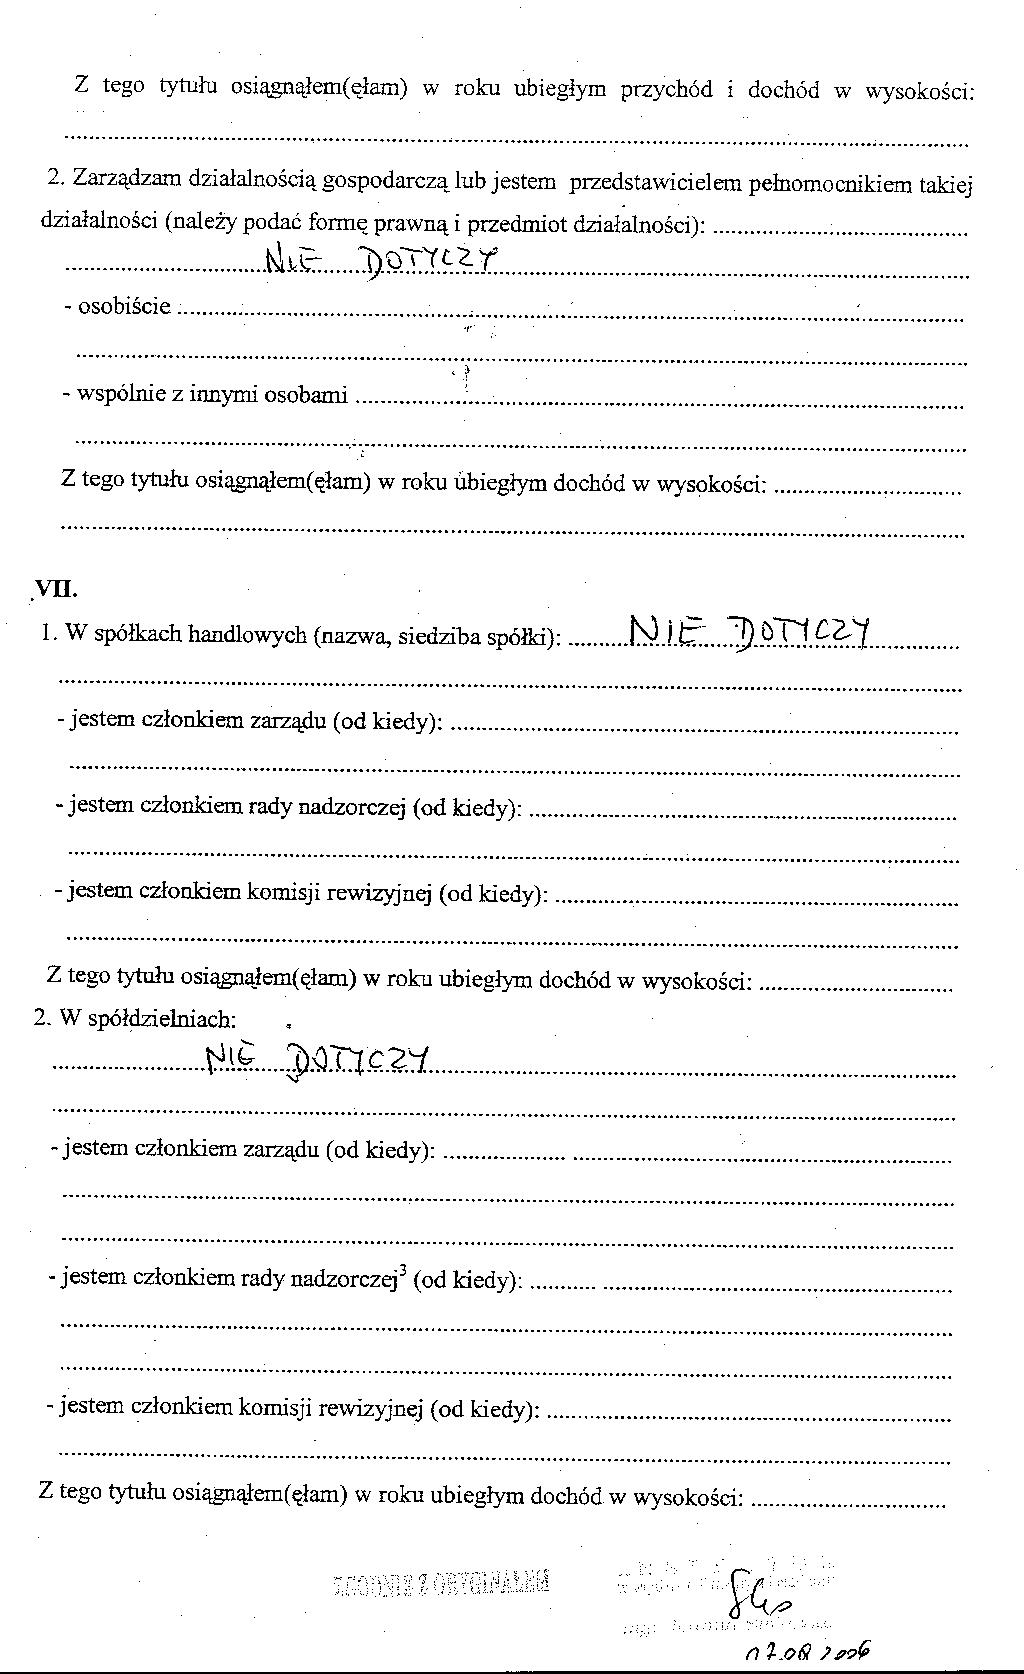 Z tego tytułu osiągnąłem(ęłam) w roku ubiegłym przychód i dochód w wysokości:
2. Zarządzam działalnością gospodarczą lub jestem przedstawicielem pełnomocnikiem takiej
działalności (należy podać formę prawną i przedmiot działalności):
NIE DOTYCZY
- osobiście
- wspólnie z innymi osobami
Z tego tytułu osiągnąłem(ęłam) w roku ubiegłym dochód w wysokości:
VII.
1. W spółkach handlowych (nazwa, siedziba spółki): NIE DOTYCZY
- jestem członkiem zarządu (od kiedy):
- jestem członkiem rady nadzorczej (od kiedy):
- jestem członkiem komisji rewizyjnej (od kiedy):
Z tego tytułu osiągnąłem(ęłam) w roku ubiegłym dochód w wysokości:
2. W spółdzielniach:
NIE DOTYCZY
- jestem członkiem zarządu (od kiedy):
- jestem członkiem rady nadzorczej³ (od kiedy):
- jestem członkiem komisji rewizyjnej (od kiedy):
Z tego tytułu osiągnąłem(ęłam) w roku ubiegłym dochód w wysokości: